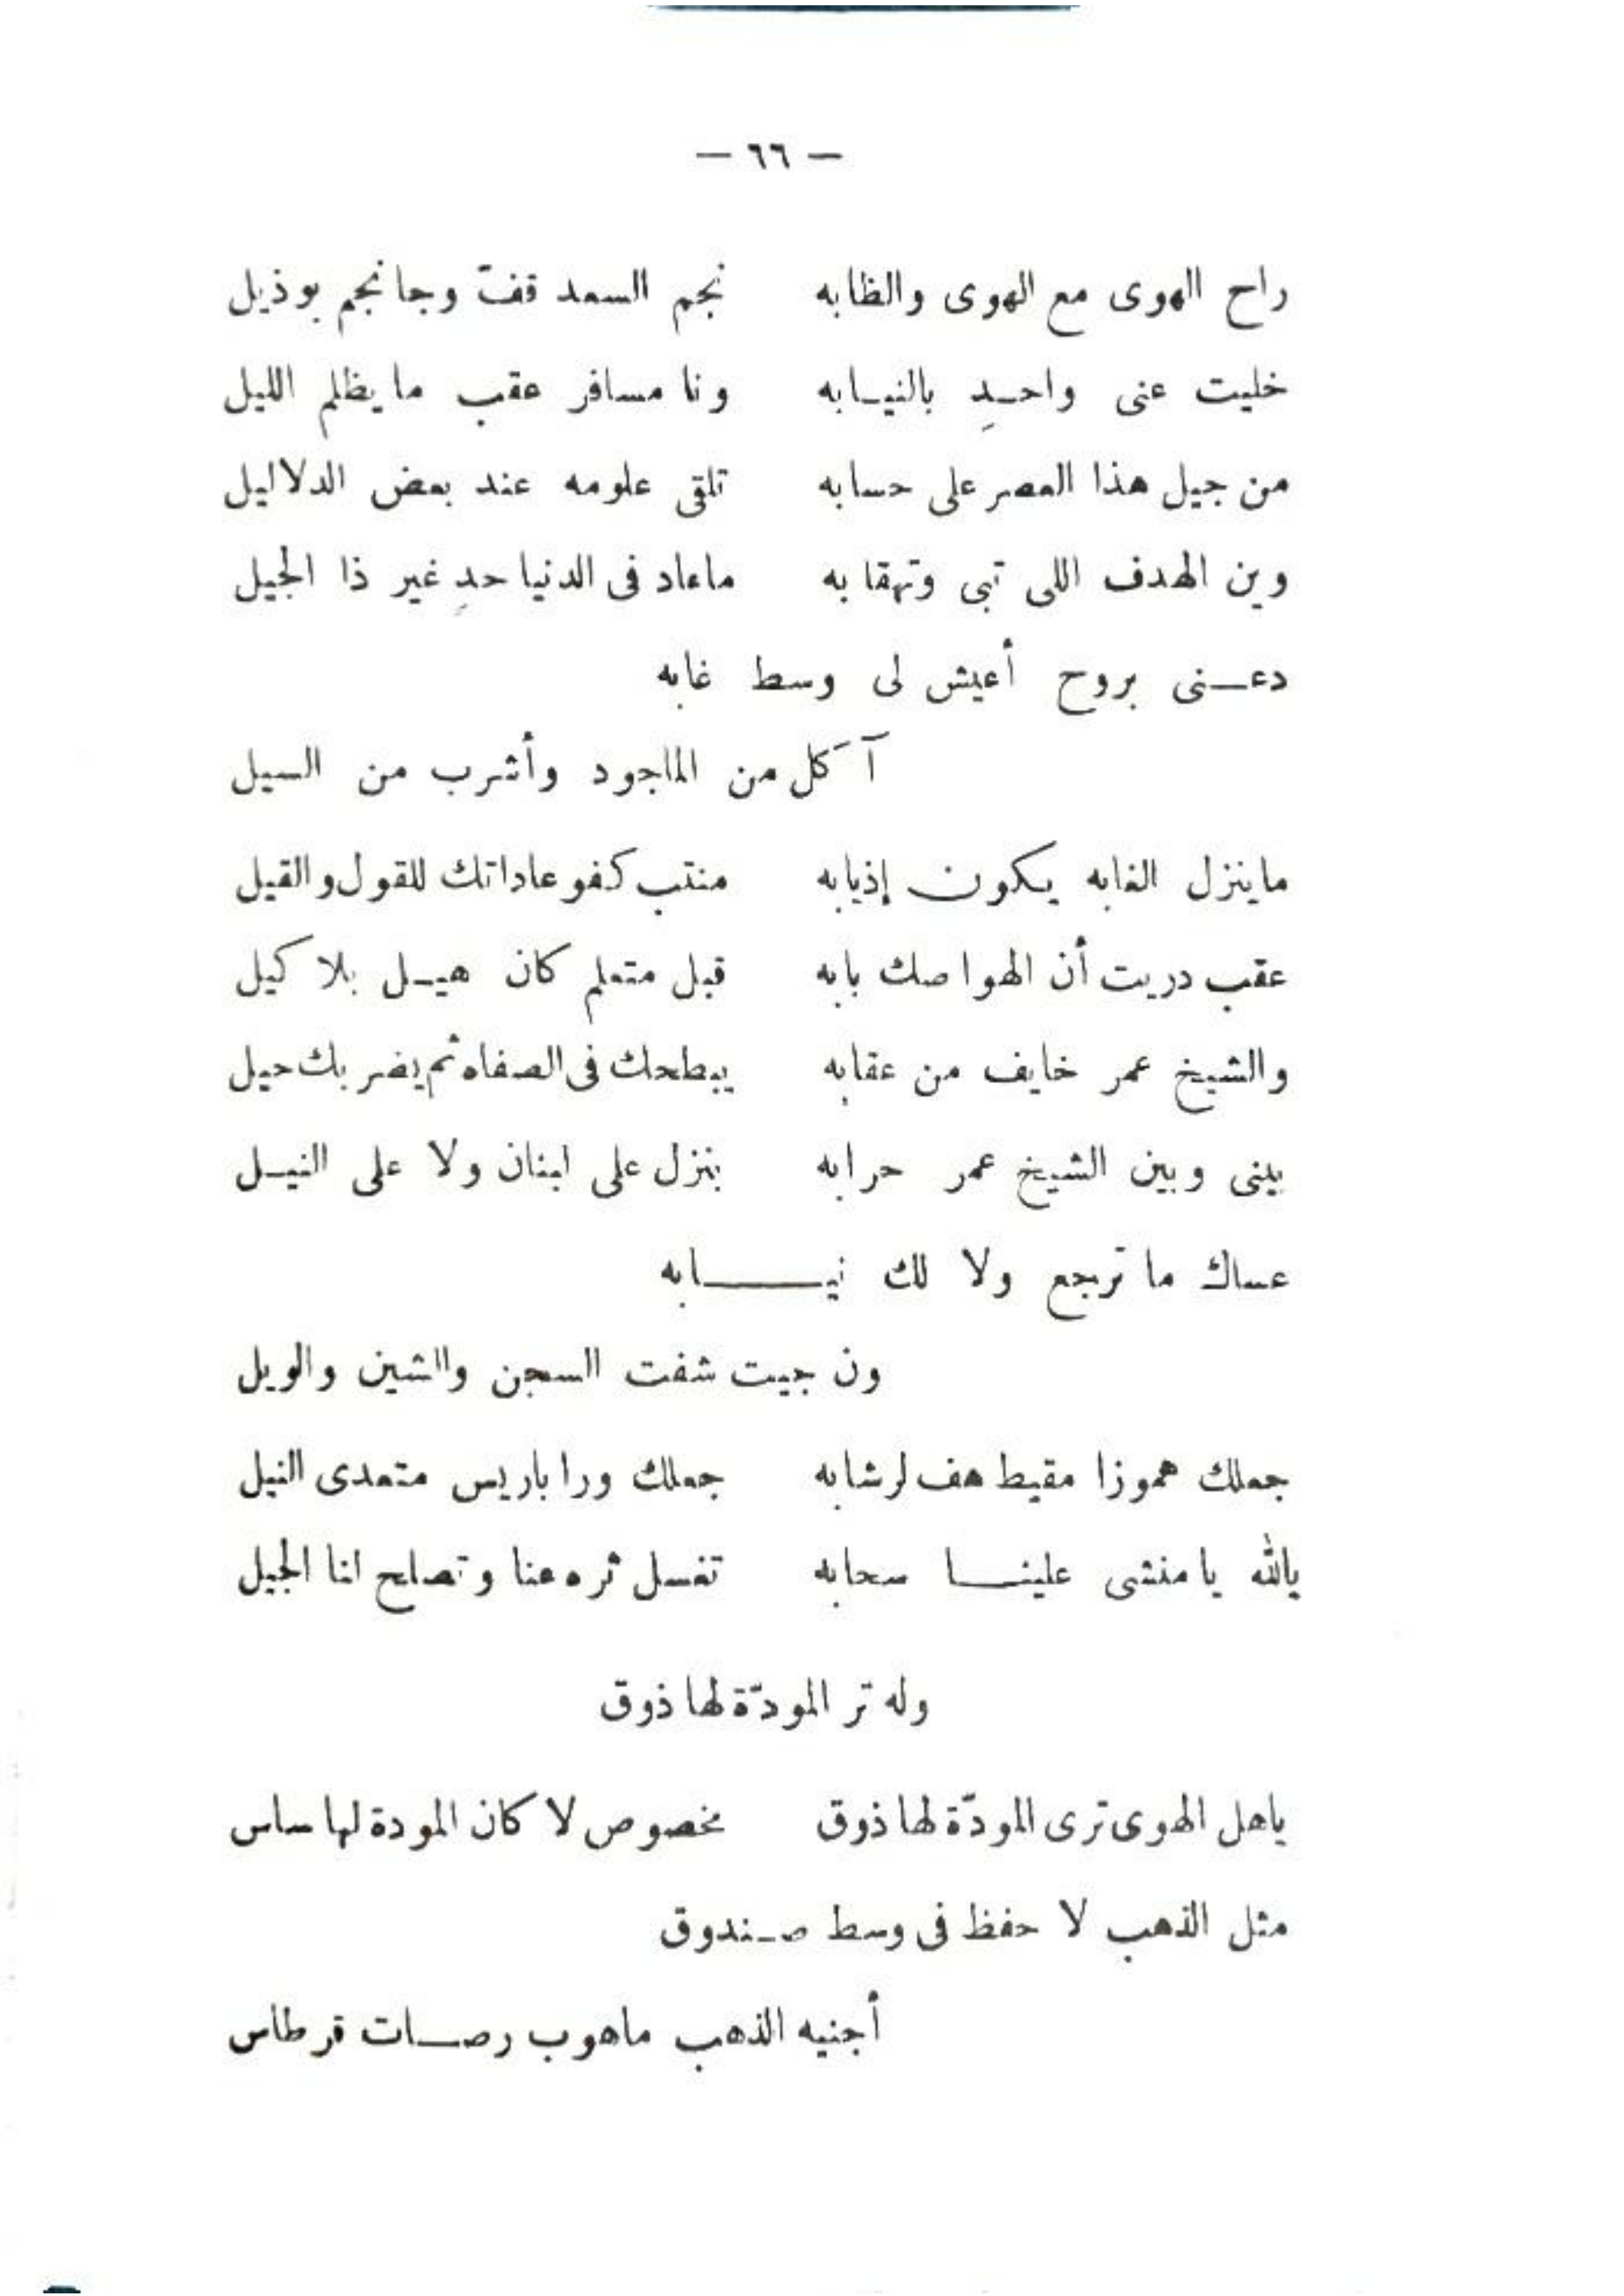 — ٦٦ —
راح الهوى مع الهوى والظابه نجم السعد قفت وجا نجم بوذيل
خليت عنى واحدٍ بالنيابه ونا مسافر عقب ما يظلم الليل
من جيل هذا العصر على حسابه تلقى علومه عند بعض الدلاليل
وين الهدف اللى تبى وتهقا به ماعاد فى الدنيا حدٍ غير ذا الجيل
دعنى بروح أعيش لى وسط غابه
آكل من الماجود وأشرب من السيل
ماينزل الغابه يكون إذيابه منتب كفو عاداتك للقول والقيل
عقب دريت أن الهوا صك بابه قبل متعلم كان هيل بلا كيل
والشيخ عمر خايف من عقابه يبطحك فى الصفاه ثم يضربك حيل
بينى وبين الشيخ عمر حرابه بنزل على لبنان ولا على النيل
عساك ما ترجع ولا لك نيابه
ون جيت شفت السجن والشين والويل
جعلك هموزا مقيط هف لرشابه جعلك ورا باريس متعدى النيل
يالله يا منشى علينا سحابه تغسل ثره عنا وتصلح لنا الجيل
وله تر المودّة لها ذوق
ياهل الهوى ترى المودّة لها ذوق مخصوص لا كان المودة لها ساس
مثل الذهب لا حفظ فى وسط صندوق
أجنيه الذهب ماهوب رصات قرطاس